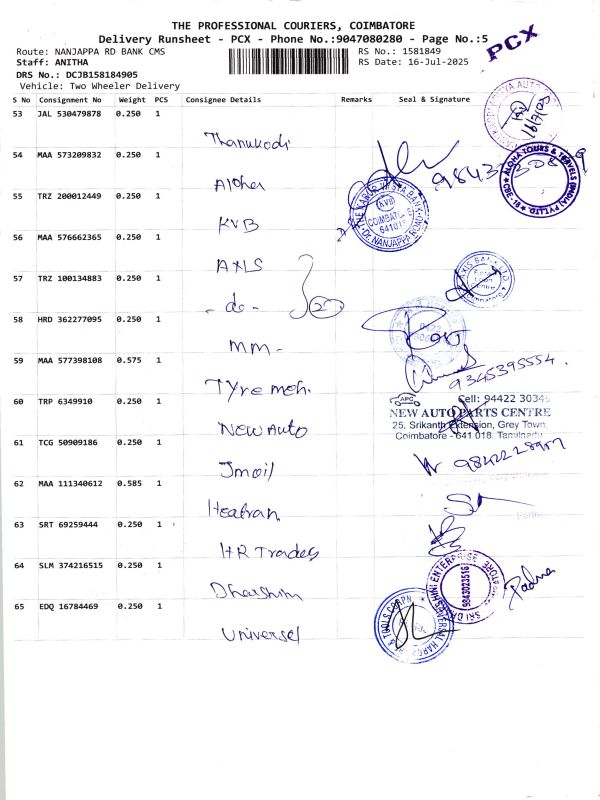 THE PROFESSIONAL COURIERS, COIMBATORE
Delivery Runsheet - PCX - Phone No.:9047080280 - Page No.:5
PCX
Route: NANJAPPA RD BANK CMS
RS No.: 1581849
Staff: ANITHA
RS Date: 16-Jul-2025
DRS No.: DCJB158184905
Vehicle: Two Wheeler Delivery
S No Consignment No Weight PCS Consignee Details Remarks Seal & Signature
53 JAL 530479878 0.250 1
Thanukodi
16/7/25
54 MAA 573209832 0.250 1
Aloha
ALOHA TOURS & TRAVELS (INDIA) PVT LTD. CBE-18
55 TRZ 200012449 0.250 1
KVB
THE KARUR VYSYA BANK
KVB
COIMBATORE
641018
Dr. NANJAPPA ROAD
56 MAA 576662365 0.250 1
AXIS
AXIS BANK LTD
57 TRZ 100134883 0.250 1
- do -
58 HRD 362277095 0.250 1
MM -
0422
59 MAA 577398108 0.575 1
9345395554.
Tyre meh.
60 TRP 6349910 0.250 1
APC
Cell: 94422 30349
NEW AUTO PARTS CENTRE
25, Srikanth Extension, Grey Town,
Coimbatore - 641 018. Tamilnadu
New Auto
61 TCG 50909186 0.250 1
Jmoil
62 MAA 111340612 0.585 1
Heatran
63 SRT 69259444 0.250 1
HR Traders
64 SLM 374216515 0.250 1
SRI DARSHINI ENTERPRISES
9843023516
Padma
Dharshini
65 EDQ 16784469 0.250 1
Universal
UNIVERSAL HARDWARE & TOOLS CORPN